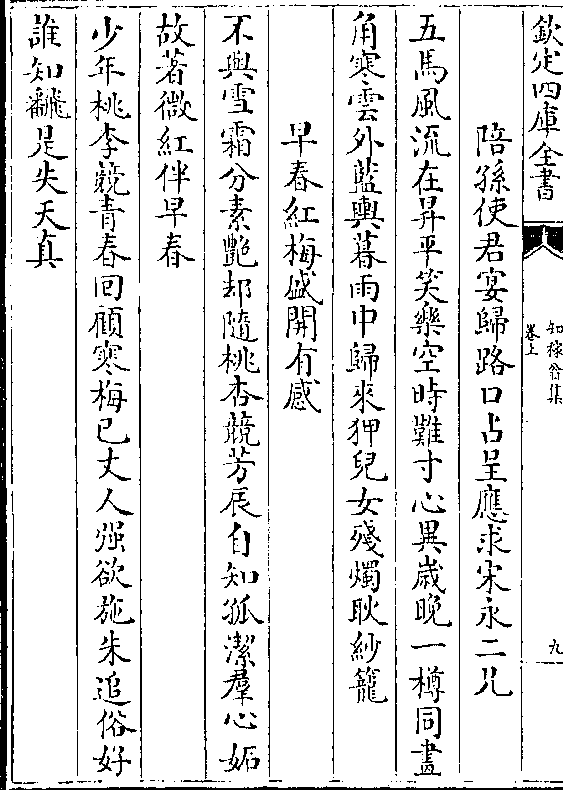 欽定四庫全書
知稼翁集
卷上
九
陪孫使君宴歸路口占呈應求宋永二兄
五馬風流在昇平笑樂空時難寸心異歲晚一樽同畫
角寒雲外藍輿暮雨中歸來狎兒女殘燭耿紗籠
早春紅梅盛開有感
不與雪霜分素艷却隨桃杏競芳辰自知孤潔羣心妬
故著微紅伴早春
少年桃李競青春回顧寒梅已丈人強欲施朱追俗好
誰知飜是失天真